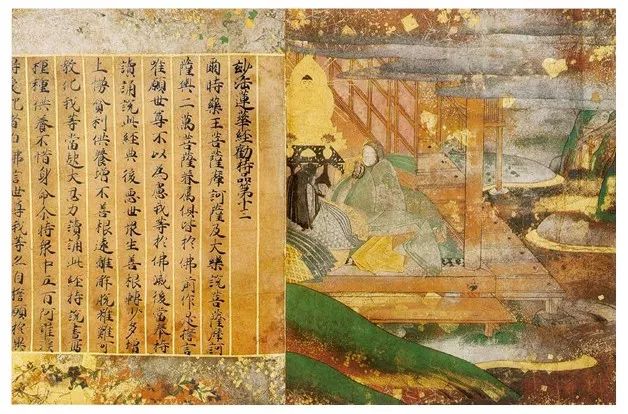 妙法蓮華經勸持品第十二
爾時藥王菩薩摩訶薩及大樂說菩薩摩訶
薩與二萬菩薩眷屬俱皆於佛前作是誓言
唯願世尊不以為慮我等於佛滅後當奉持
讀誦說此經典後惡世眾生善根轉少多增
上慢貪利供養增不善根遠離解脫雖難可
教化我等當起大忍力讀誦此經持說書寫
種種供養不惜身命尒時眾中五百阿羅漢
得受記者白佛言世尊我等亦自誓願於異